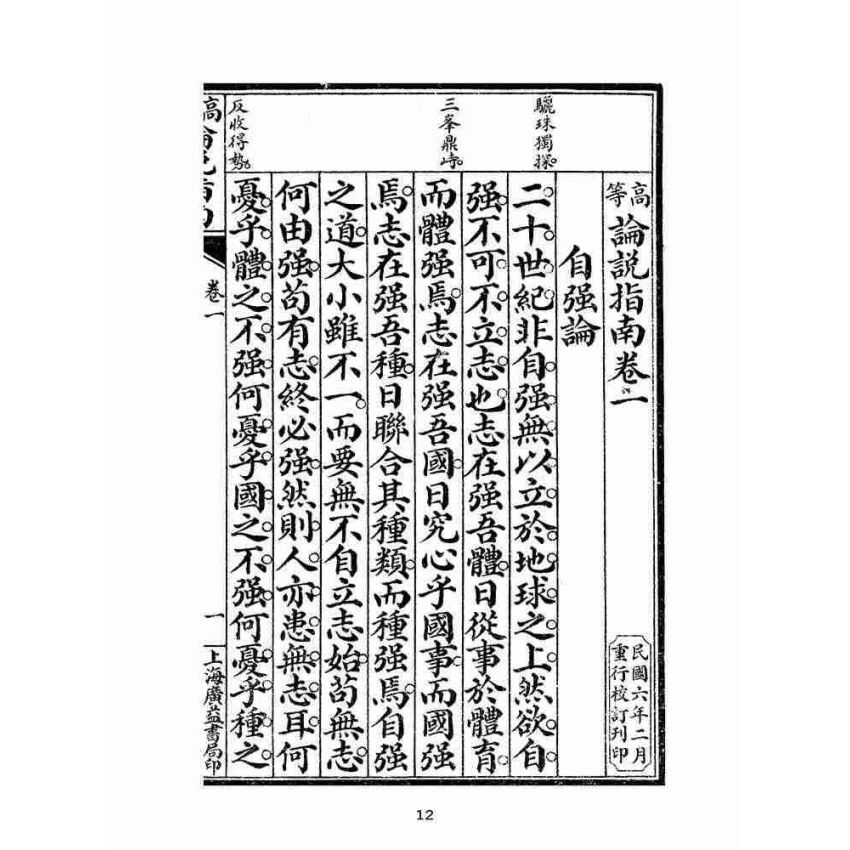 高等論説指南卷一
民國六年二月
重行校訂刊印
自强論
驪珠獨探
二十世紀非自强無以立於地球之上然欲自
强不可不立志也志在强吾體日從事於體育
三峯鼎峙
而體强焉志在强吾國日究心乎國事而國强
焉志在强吾種日聯合其種類而種强焉自强
之道大小雖不一而要無不自立志始苟無志
何由强苟有志終必强然則人亦患無志耳何
反收得勢
憂乎體之不强何憂乎國之不强何憂乎種之
卷一
一
上海廣益書局印
12